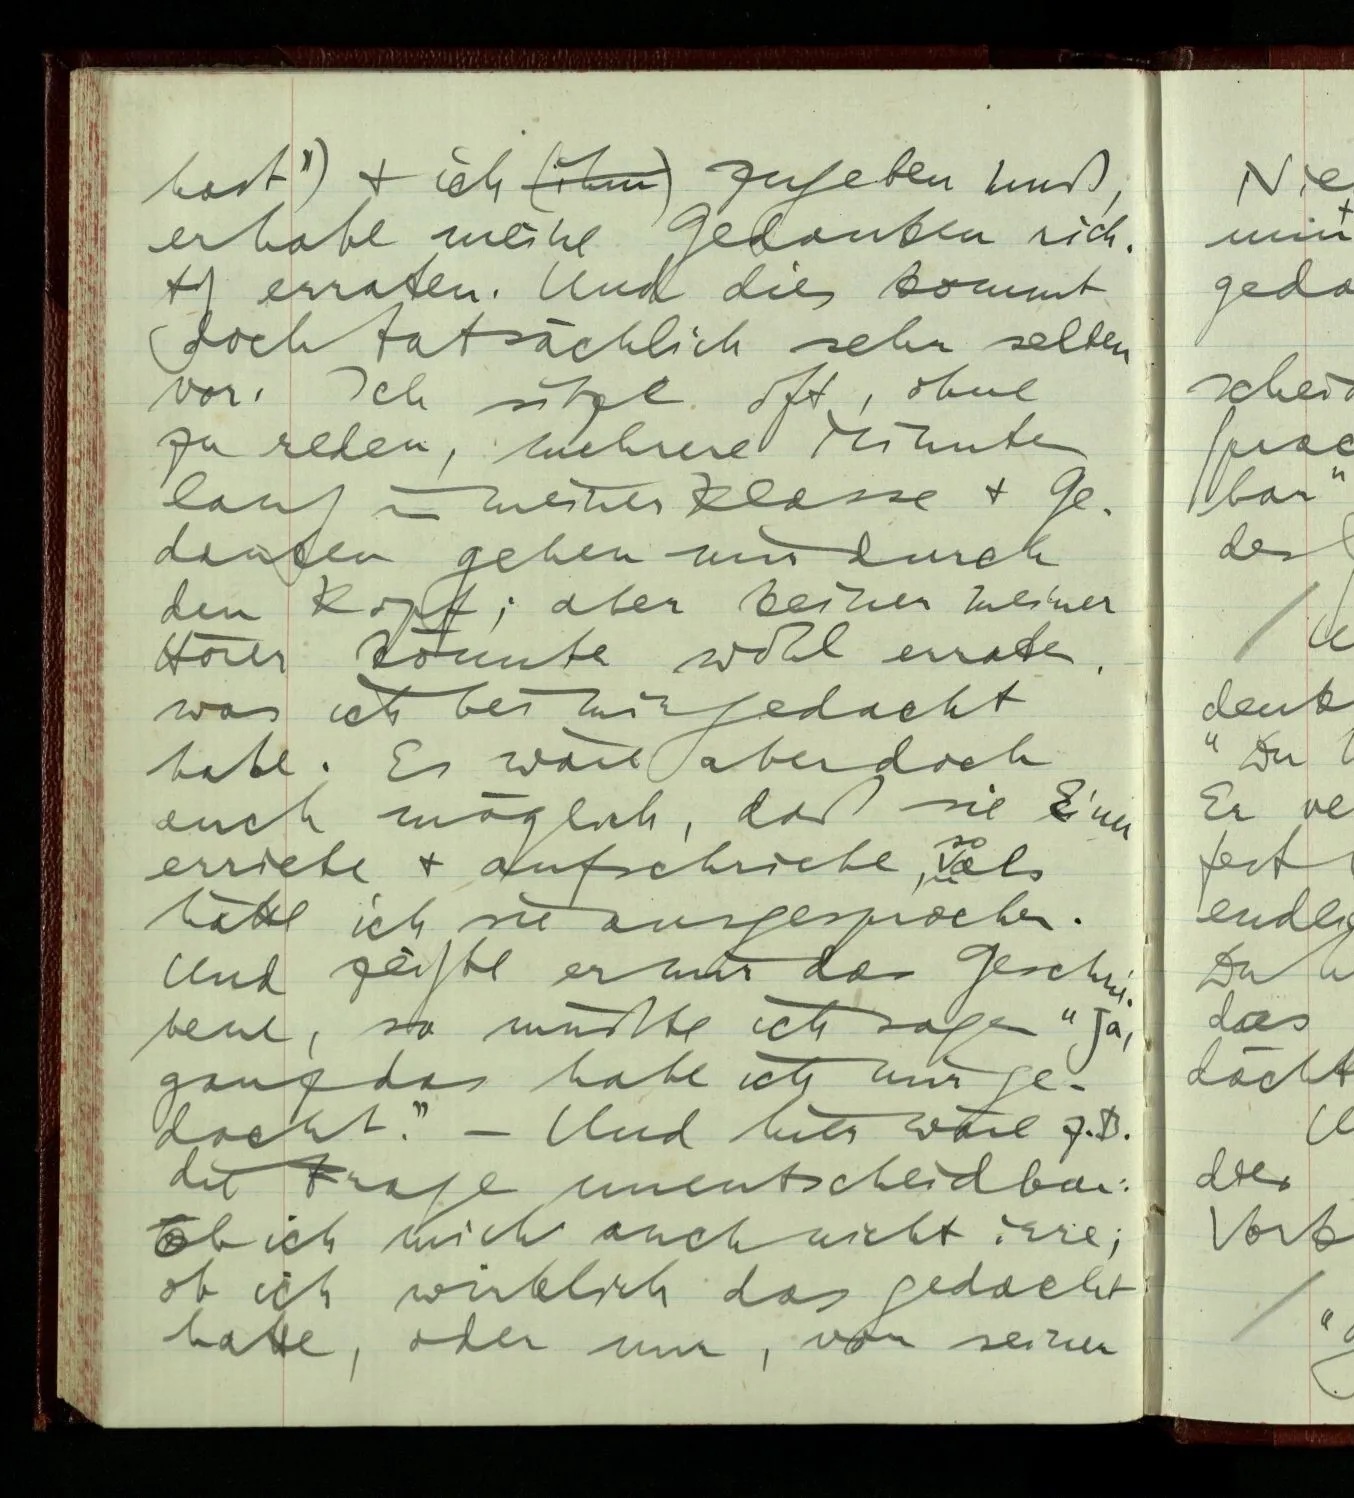 hast") + ich (ihm) zugeben muß,
er habe meine Gedanken rich-
tig erraten. Und dies kommt
doch tatsächlich sehr selten
vor. Ich sitze oft, ohne
zu reden, mehrere Minuten
lang in meiner Klasse + Ge-
danken gehen mir durch
den Kopf; aber keiner meiner
Hörer könnte wohl erraten,
was ich bei mir gedacht
habe. Es wäre aber doch
auch möglich, daß sie Einer
erriete + aufschriebe, so als
hätte ich sie ausgesprochen.
Und zeigte er mir das Geschrie-
bene, so müßte ich sagen "Ja,
ganz das habe ich mir ge-
dacht." – Und hier wäre z.B.
die Frage unentscheidbar:
ob ich mich auch nicht irre;
ob ich wirklich das gedacht
hatte, oder nur, von seiner
Nie
geda
scheid
bar"
des
denk
"Du
Er ve
fest
endli
Du h
das
dacht
dies
Vork